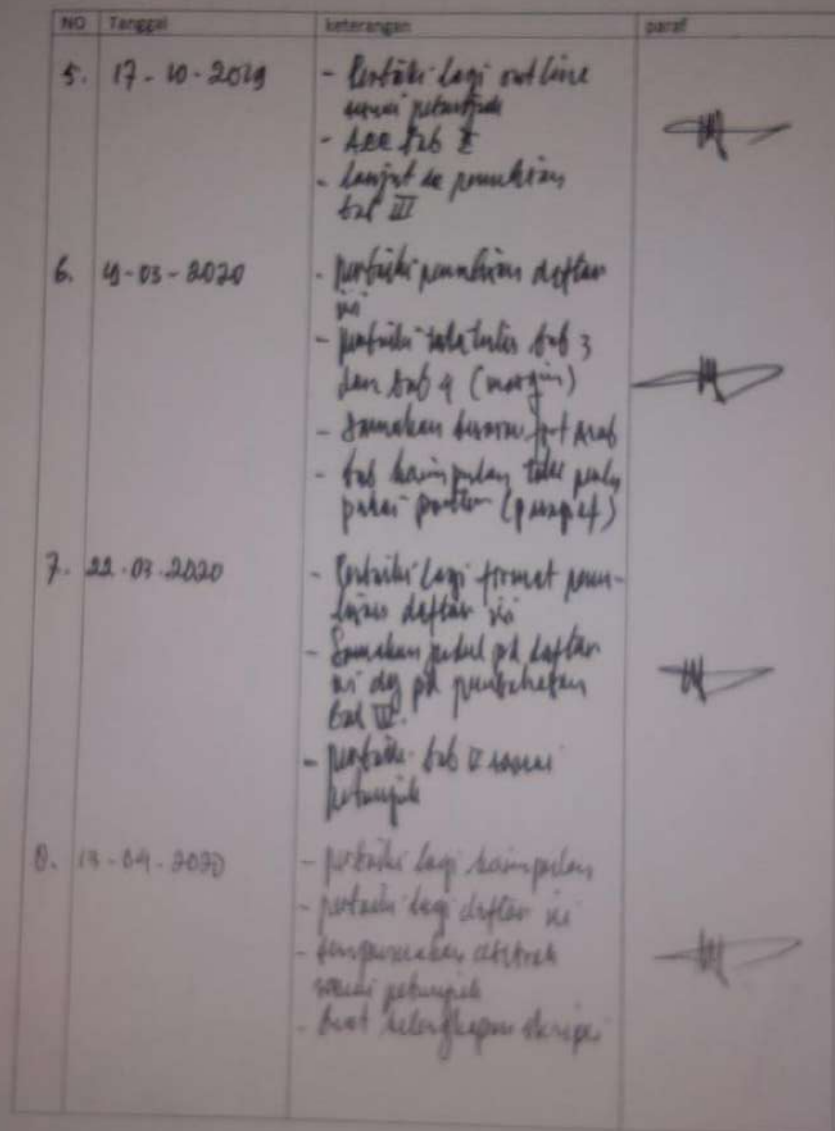 NO Tanggal keterangan paraf
5. 17-10-2019 - Perbaiki lagi outline
sesuai petunjuk
- Acc bab II
- Lanjut ke penulisan
bab III
6. 19-03-2020 - perbaiki penulisan daftar
isi
- perbaiki tata tulis bab 3
dan bab 4 (margin)
- Samakan font Arab
- bab kesimpulan tdk perlu
pakai (paragraf)
7. 22-03-2020 - Perbaiki lagi format penu-
lisan daftar isi
- Samakan judul pd daftar
isi dg pd pembahasan
bab IV.
- perbaiki bab V sesuai
petunjuk
8. 13-04-2020 - perbaiki lagi kesimpulan
- perbaiki lagi daftar isi
- sempurnakan abstrak
sesuai petunjuk
- buat kelengkapan skripsi